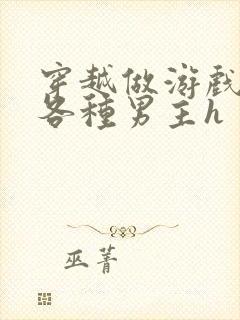 穿越做游戲
各種男主h
巫菁